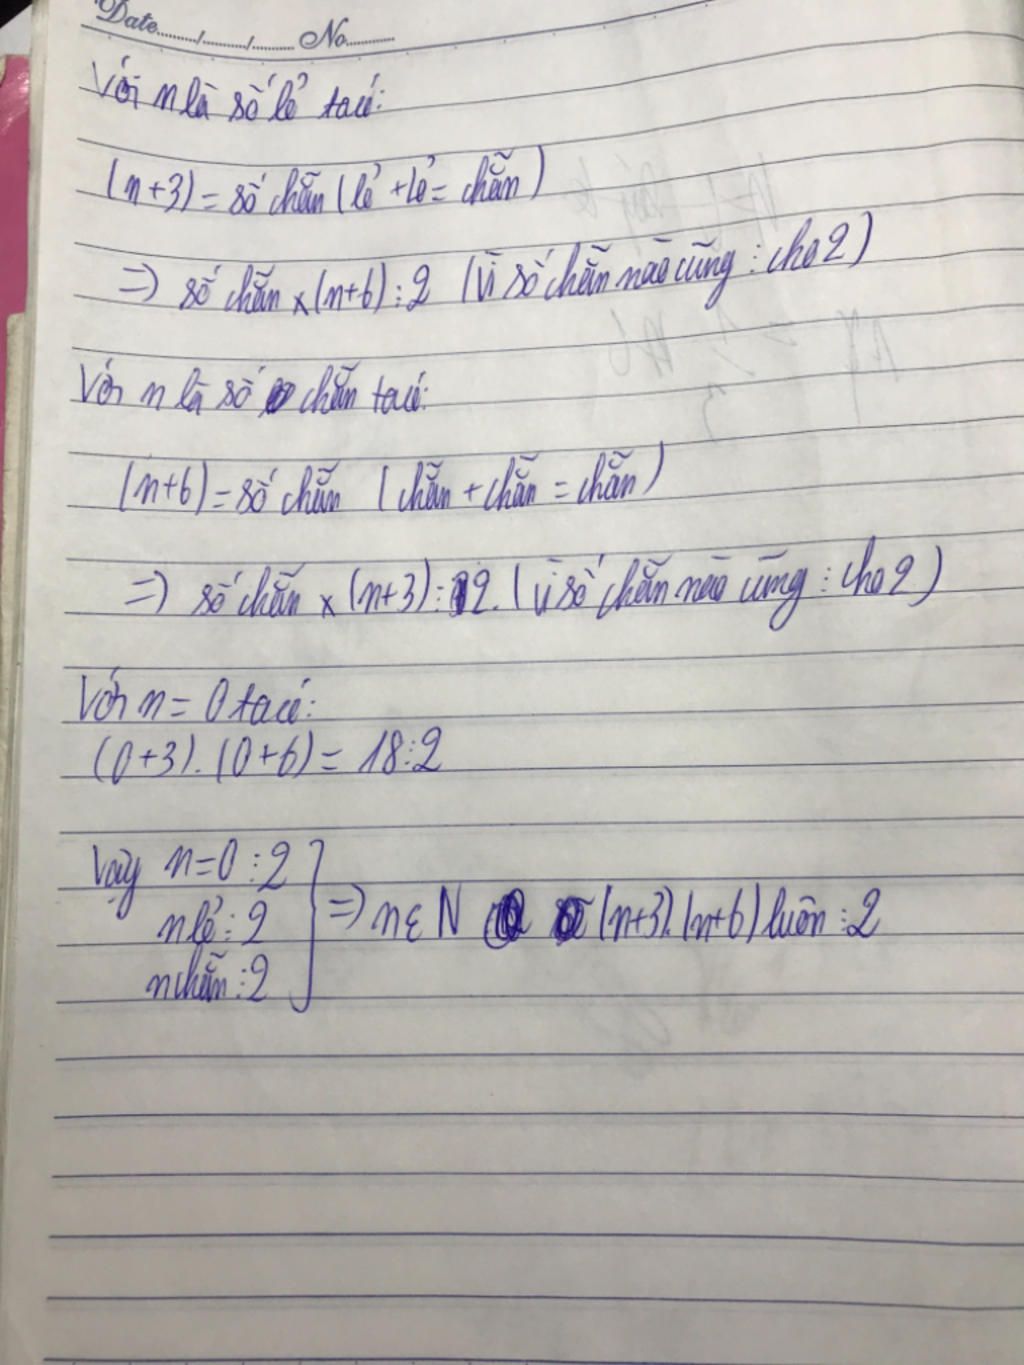 Date......./......./....... No.........
Với n là số lẻ ta có:
(n+3) = số chẵn (lẻ + lẻ = chẵn)
=> số chẵn x (n+6) ⋮ 2 (vì số chẵn nào cũng ⋮ cho 2)
Với n là số chẵn ta có:
(n+6) = số chẵn (chẵn + chẵn = chẵn)
=> số chẵn x (n+3) ⋮ 2. (vì số chẵn nào cũng ⋮ cho 2)
Với n = 0 ta có:
(0+3).(0+6) = 18 ⋮ 2
Vậy n=0 ⋮ 2
n lẻ ⋮ 2
n chẵn ⋮ 2
} => n ∈ N (n+3).(n+6) luôn ⋮ 2